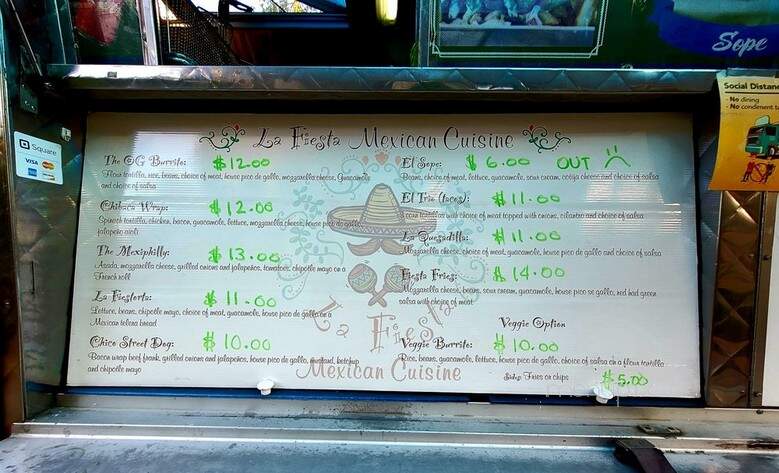 Sope
Social Distan
- No dining
- No condiment t
Square
VISA
La Fiesta Mexican Cuisine
The OG Burrito: $12.00
Flour tortilla, rice, beans, choice of meat, house pico de gallo, mozzarella cheese, Guacamole
and choice of salsa
Chilaca Wrap: $12.00
Spinach tortilla, chicken, bacon, guacamole, lettuce, mozzarella cheese, house pico de gallo,
jalapeño aioli
The Mexiphilly: $13.00
Asada, mozzarella cheese, grilled onions and jalapeños, tomatoes, chipotle mayo on a
French roll
La Fiestorta: $11.00
Lettuce, beans, chipotle mayo, choice of meat, guacamole, house pico de gallo on a
Mexican telera bread
Chico Street Dog: $10.00
Bacon wrap beef frank, grilled onions and jalapeños, house pico de gallo, mustard, ketchup
and chipotle mayo
El Sope: $6.00 OUT
Beans, choice of meat, lettuce, guacamole, sour cream, cotija cheese and choice of salsa
El Trio (tacos): $11.00
corn tortillas with choice of meat topped with onions, cilantro and choice of salsa
La Quesadilla: $11.00
Mozzarella cheese, choice of meat, guacamole, house pico de gallo and choice of salsa
Fiesta Fries: $14.00
Mozzarella cheese, beans, sour cream, guacamole, house pico se gallo, red had green
salsa with choice of meat
Veggie Option
Veggie Burrito: $10.00
Rice, beans, guacamole, lettuce, house pico de gallo, choice of salsa on a flour tortilla
Side Fries or chips $5.00
La Fiesta
Mexican Cuisine